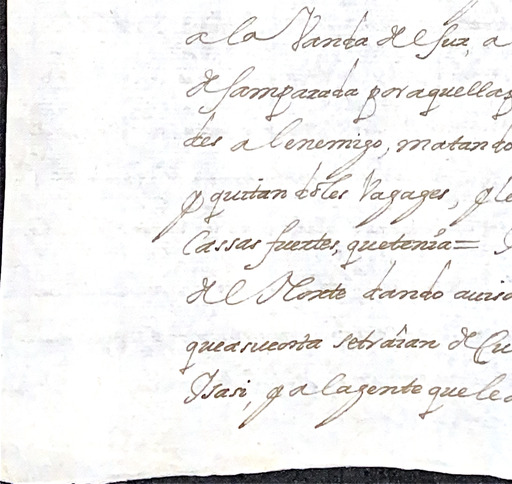 a la Vanda del Sur, a
desamparada por aquella p
des al enemigo, matando
y quitandoles Vagages, y le
Cassas fuertes, que tenia =
del Norte dando aviso
que a su costa se traian de Cu
Ysasi, y a la gente que le